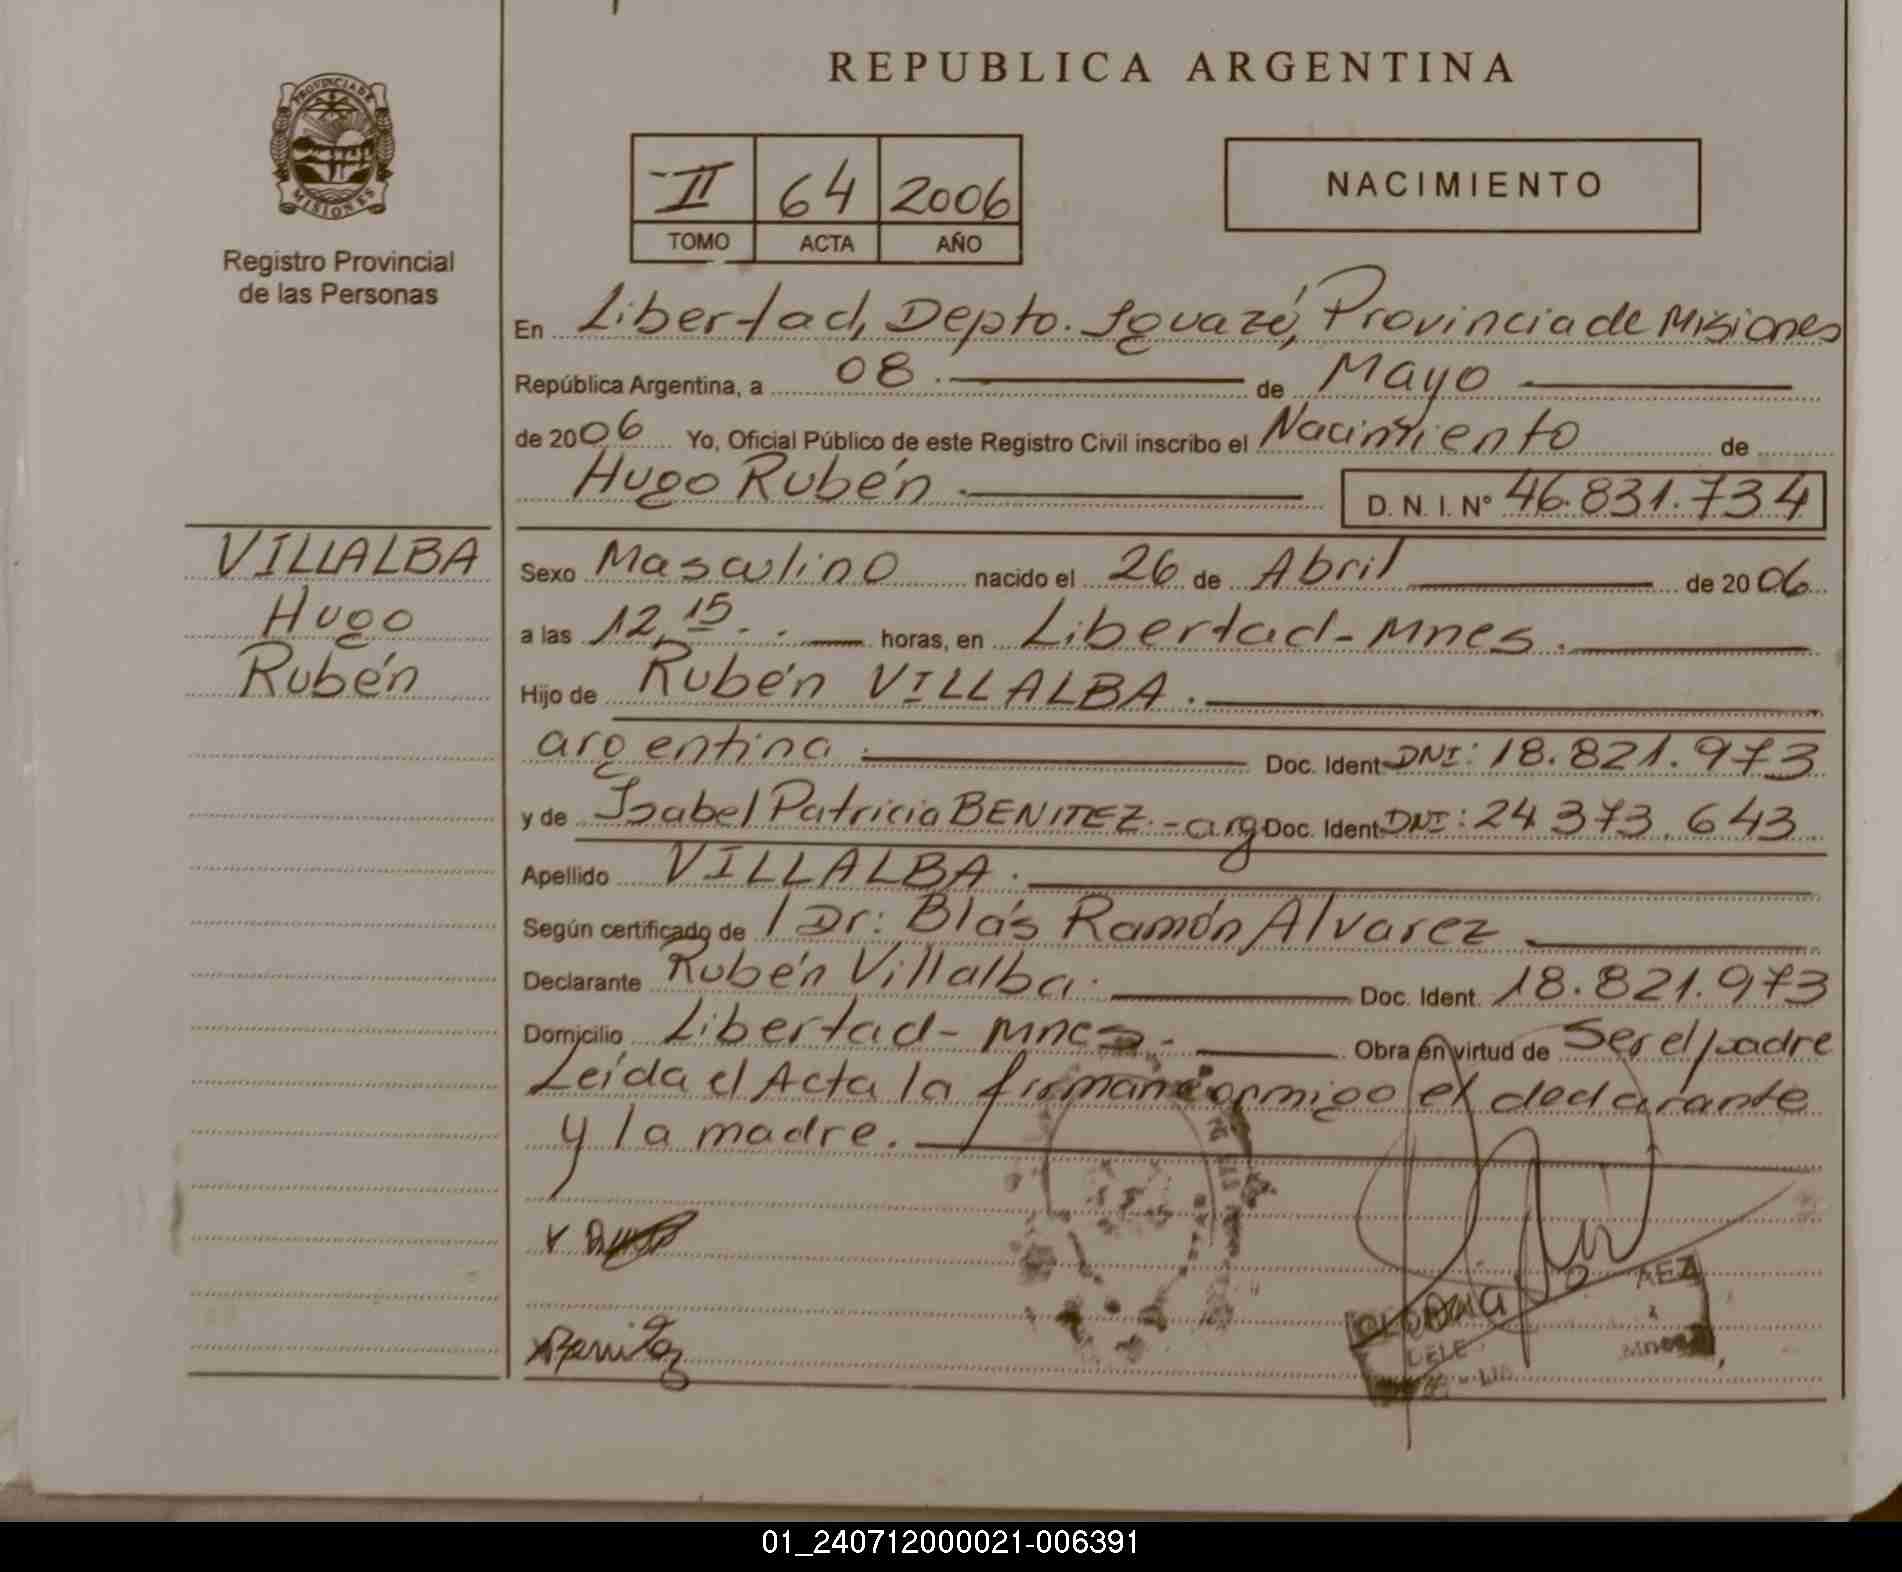 REPUBLICA ARGENTINA
PROVINCIA DE
MISIONES
Registro Provincial
de las Personas
II 64 2006
TOMO ACTA AÑO
NACIMIENTO
En Libertad, Depto. Iguazú, Provincia de Misiones
República Argentina, a 08. de Mayo
de 2006 Yo, Oficial Público de este Registro Civil inscribo el Nacimiento de
Hugo Rubén D. N. I. N° 46.831.734
VILLALBA
Hugo
Rubén
Sexo Masculino nacido el 26 de Abril de 2006
a las 12,15. horas, en Libertad - Mnes.
Hijo de Rubén VILLALBA.
argentina Doc. Ident DNI: 18.821.973
y de Isabel Patricia BENITEZ.- arg Doc. Ident DNI: 24 373.643
Apellido VILLALBA.
Según certificado de / Dr: Blás Ramón Alvarez
Declarante Rubén Villalba. Doc. Ident. 18.821.973
Domicilio Libertad - Mnes. Obra en virtud de Ser el padre
Leída el Acta la firman conmigo el declarante
y la madre.
Benitez
01_240712000021-006391